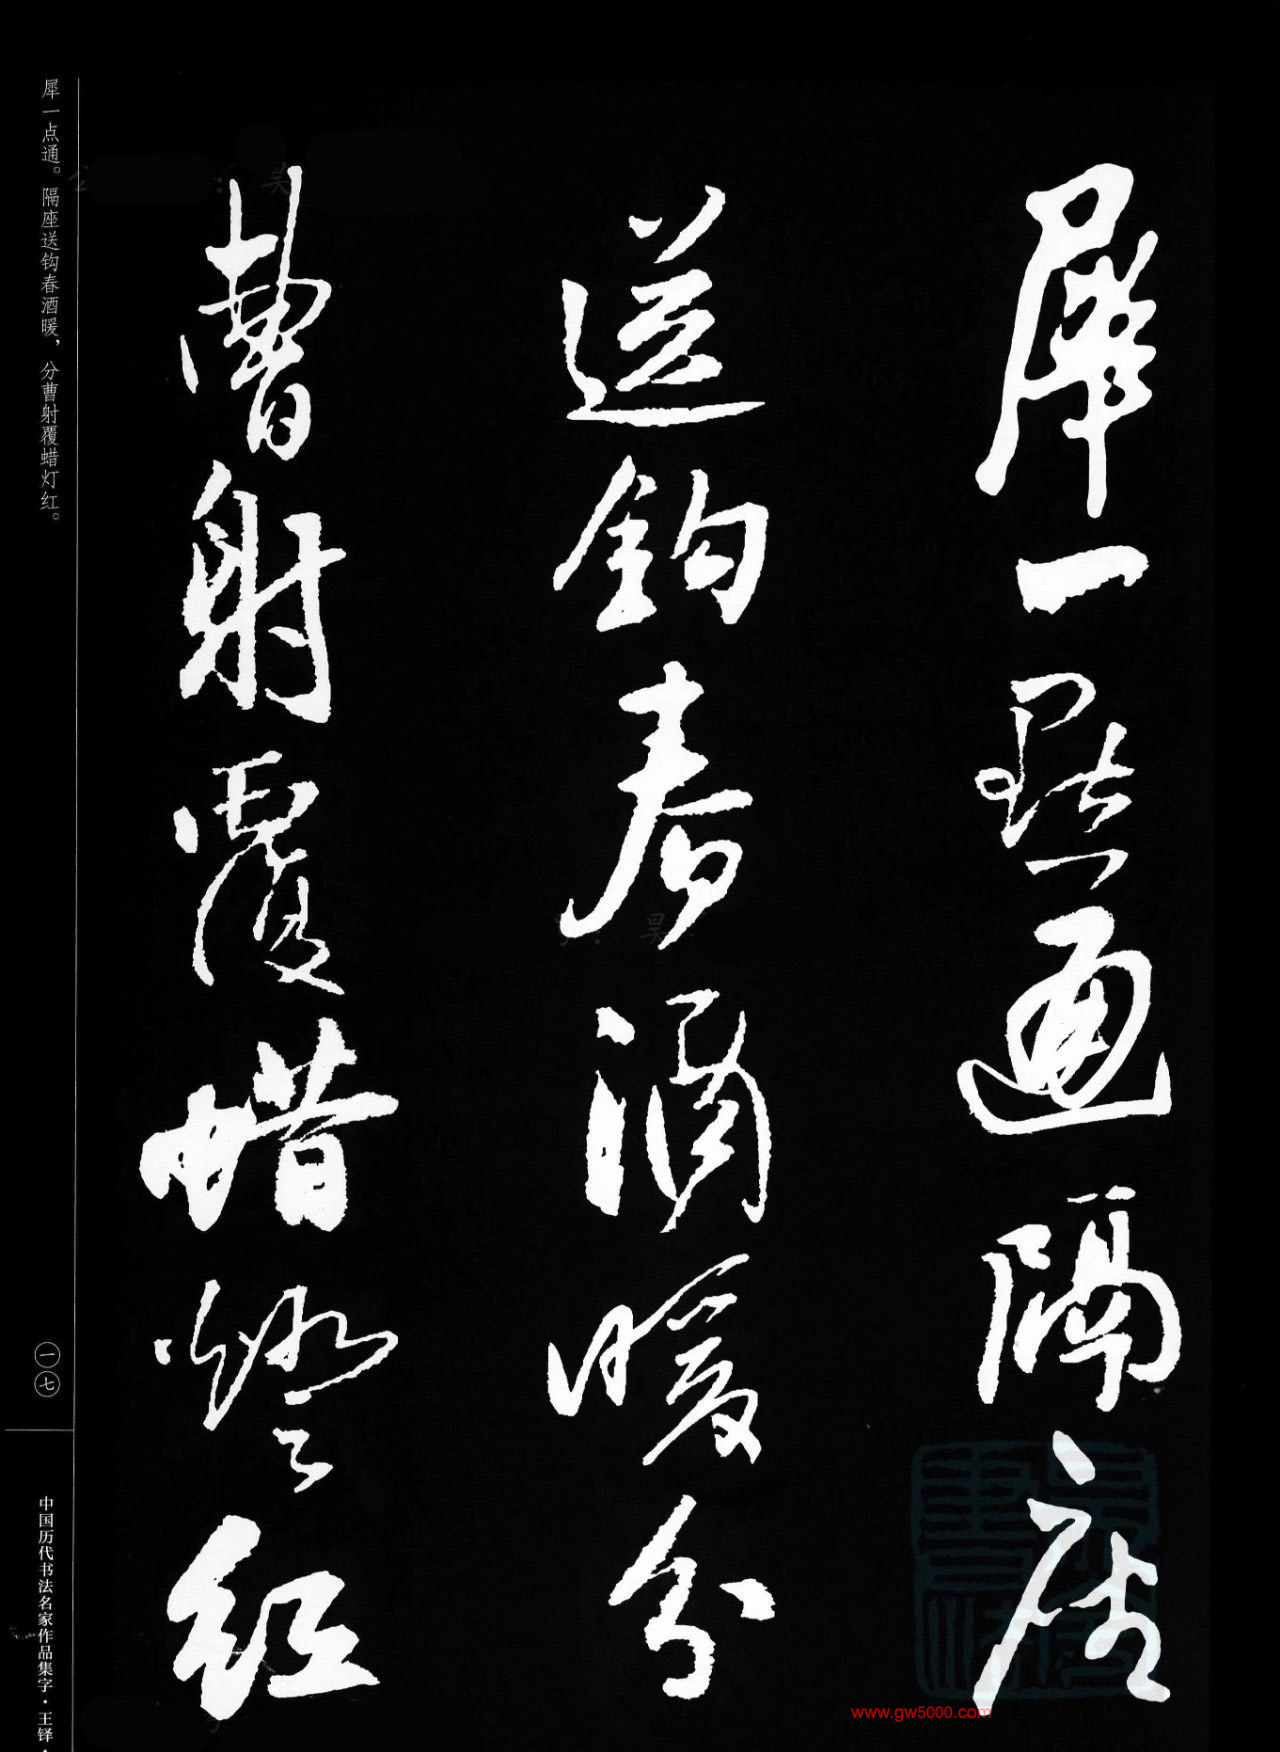 犀一點通隔座
送鈎春酒暖分
曹射覆蜡燈紅
犀一点通。隔座送钩春酒暖，分曹射覆蜡灯红。
一七
中国历代书法名家作品集字·王铎·
www.gw5000.com